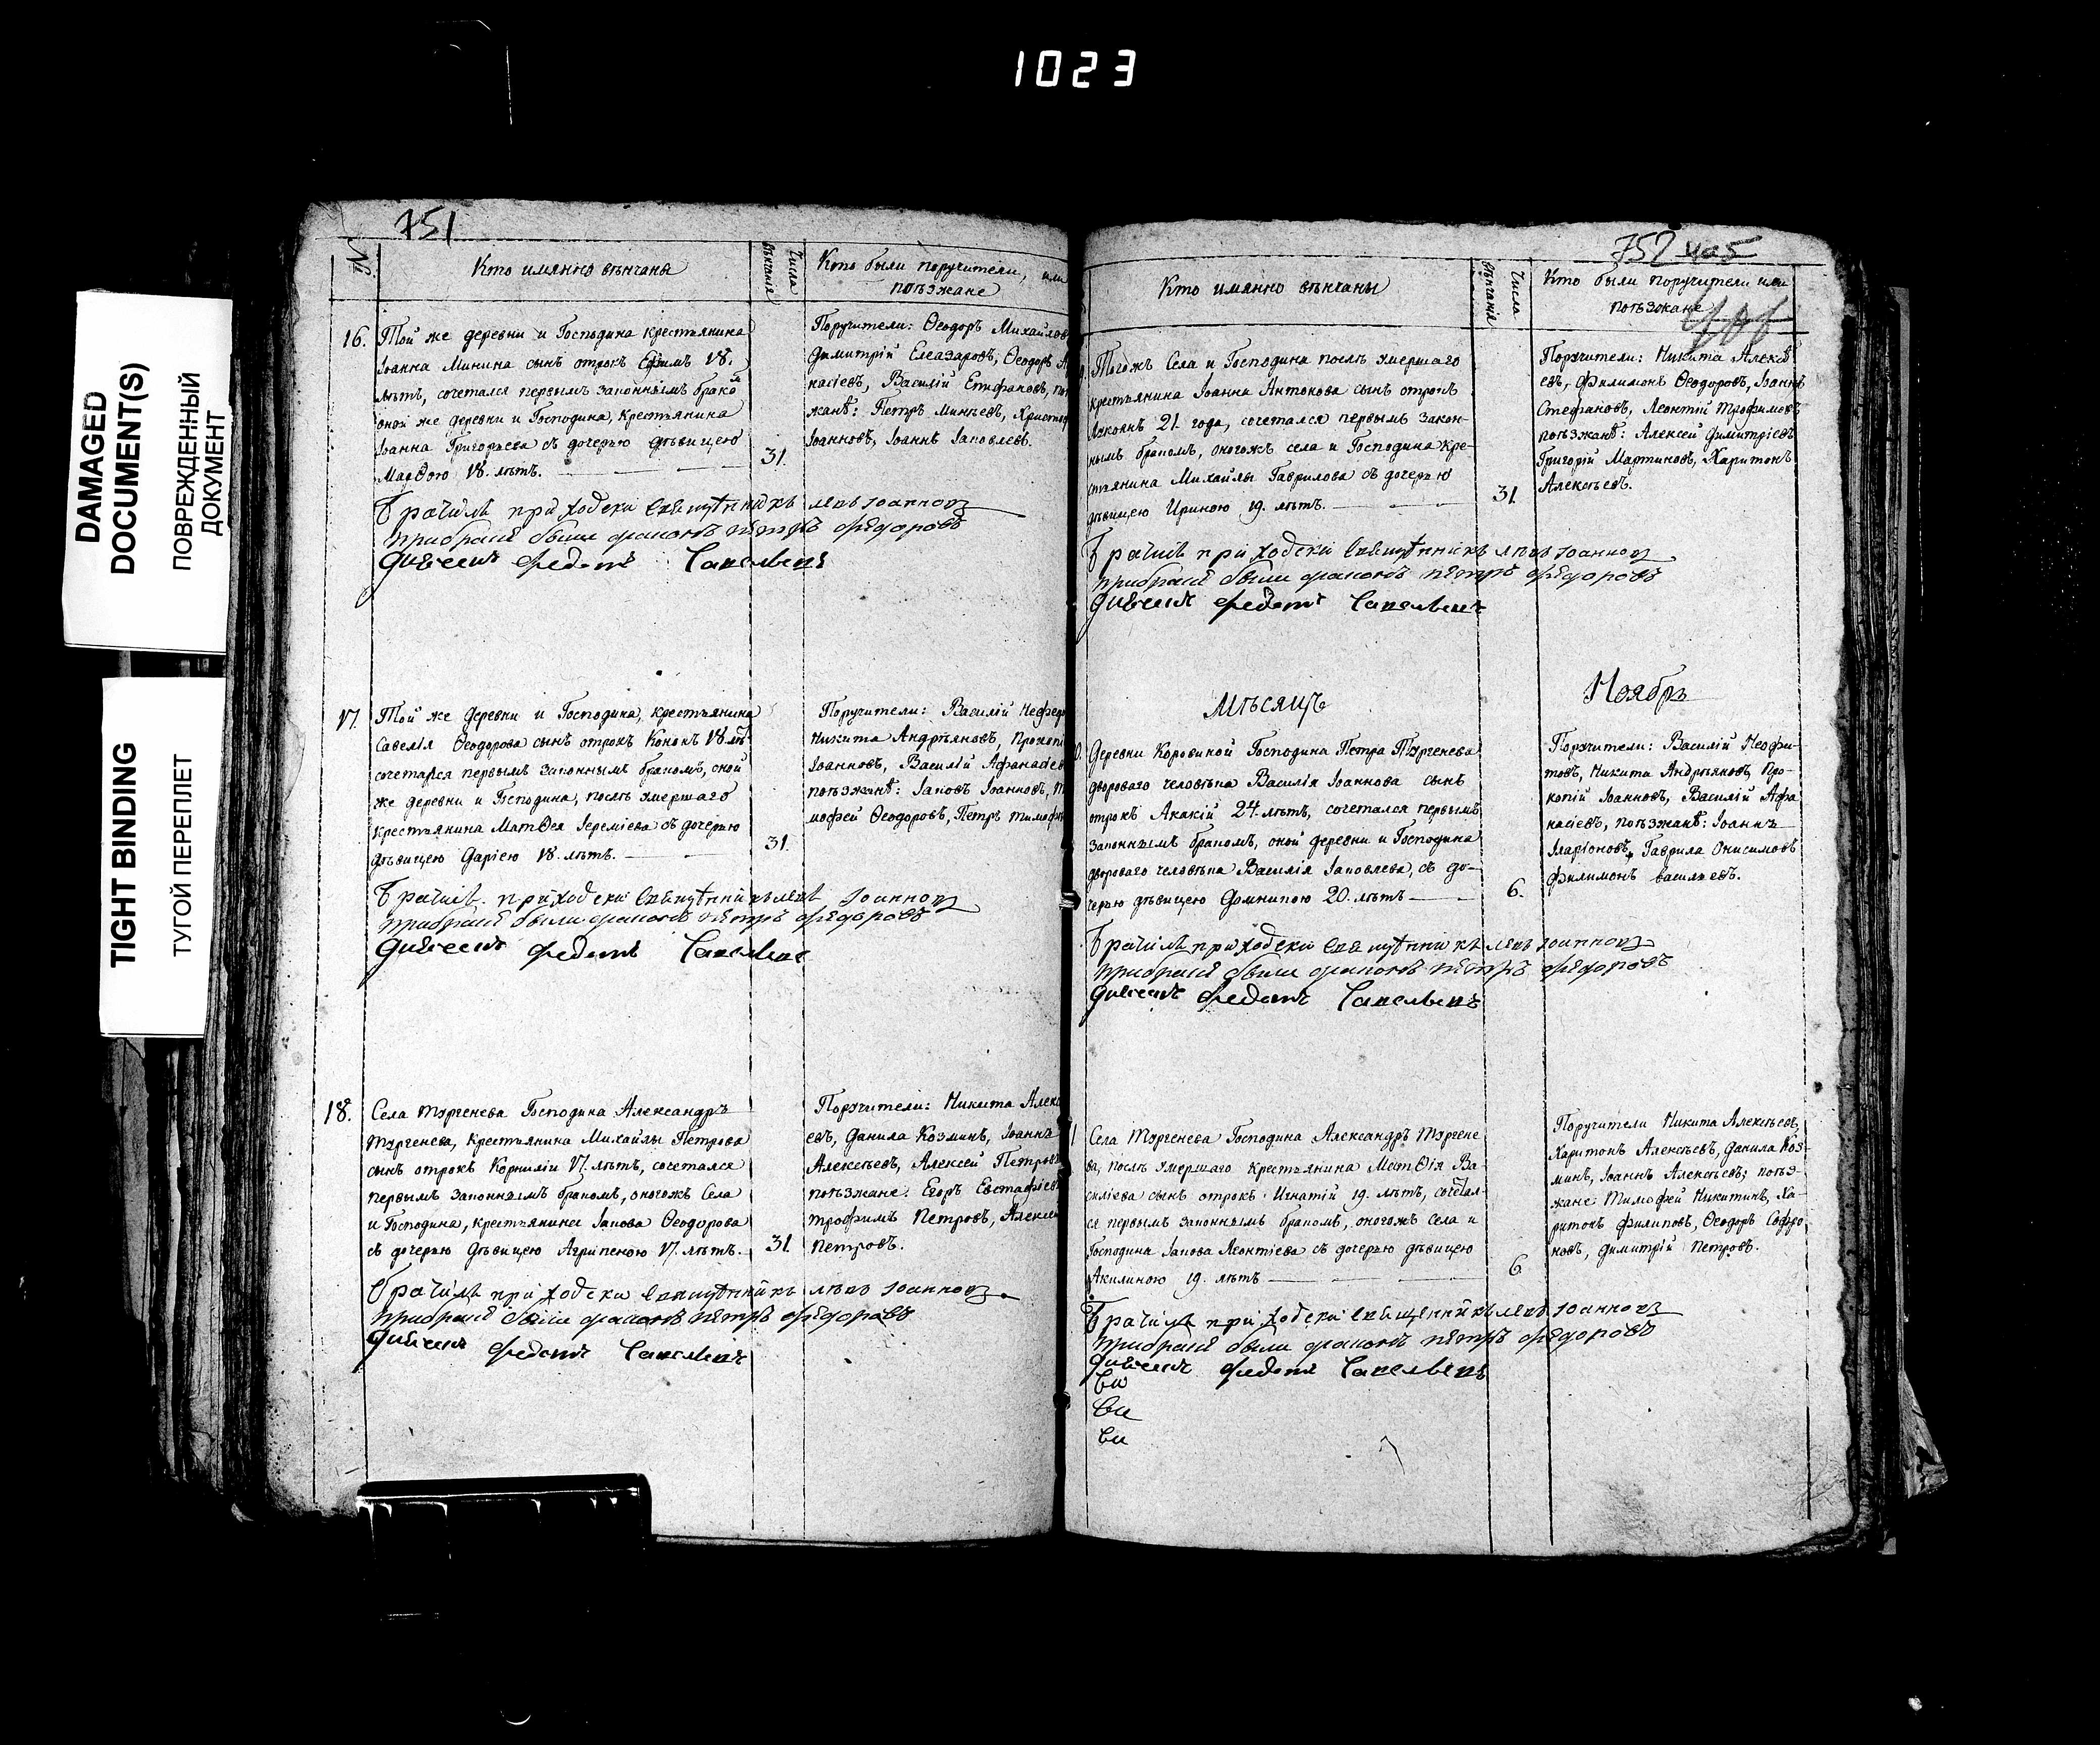 1023
DAMAGED
DOCUMENT(S)
ПОВРЕЖДЕННЫЙ
ДОКУМЕНТ
TIGHT BINDING
ТУГОЙ ПЕРЕПЛЕТ
751
№
Кто имянно вѣнчаны
Числа вѣнчанія
Кто были поручители, или
поѣзжане
16.
Той же деревни и Господина крестьянина
Іоанна Минина сынъ отрокъ Ефимъ 18.
лѣтъ, сочетался первымъ законнымъ бракомъ
оной же деревни и Господина, крестьянина
Іоанна Григорьева съ дочерью дѣвицею
Марѳою 18. лѣтъ.
31.
Поручители: Ѳеодоръ Михайлов
Димитрій Елеазаровъ, Ѳеодоръ А
насіевъ, Василій Епифановъ, по
жанѣ: Петръ Минѣевъ, Христоф
Іоанновъ, Іоаннъ Іаковлевъ.
Брачилъ приходски священникъ левъ Іоанновъ
при браке были диаконъ петръ фёдоровъ
дичекъ федотъ Савельевъ
17.
Той же деревни и Господина, крестьянина
Савелія Ѳеодорова сынъ отрокъ Конокъ 18 лѣ
сочетался первымъ законнымъ бракомъ, оной
же деревни и Господина, послѣ умершаго
крестьянина Матѳея Іереміева съ дочерью
дѣвицею Даріею 18. лѣтъ.
31.
Поручители: Василій Неофи
Никита Андрѣяновъ, Прокопі
Іоанновъ, Василій Афанасіев
поѣзжанѣ: Іаковъ Іоанновъ, Т
мофей Ѳеодоровъ, Петръ Тимофѣ
Брачилъ приходски священникъ левъ Іоанновъ
при браке были диаконъ петръ фёдоровъ
дичекъ федотъ Савельевъ
18.
Села Тургенева Господина Александръ
Тургенева, крестьянина Михайлы Петрова
сынъ отрокъ Корнилій 17. лѣтъ, сочетался
первымъ законнымъ бракомъ, оногожъ Села
и Господина, крестьянина Іакова Ѳеодорова
съ дочерью дѣвицею Агрипеною 17. лѣтъ.
31.
Поручители: Никита Алекс
евъ, Данила Козминъ, Іоаннъ
Алексѣевъ, Алексей Петровъ
поѣзжане: Егоръ Евстафіев
Трофимъ Петровъ, Алексей
Петровъ.
Брачилъ приходски священникъ левъ Іоанновъ
при браке были диаконъ петръ фёдоровъ
дичекъ федотъ Савельевъ
752 405
Кто имянно вѣнчаны
Числа вѣнчанія
Кто были поручители или
поѣзжане
Тогожъ Села и Господина послѣ умершаго
крестьянина Іоанна Антонова сынъ отрокъ
21. года, сочетался первымъ закон-
нымъ бракомъ, оногожъ села и Господина кре-
стьянина Михайлы Гаврилова съ дочерью
дѣвицею Ириною 19. лѣтъ.
31.
Поручители: Никита Алексѣ
евъ, Филимонъ Ѳеодоровъ, Іоаннъ
Стефановъ, Леонтій Трофимовъ
поѣзжанѣ: Алексей Димитріевъ
Григорій Мартиновъ, Харитонъ
Алексѣевъ.
Брачилъ приходски священникъ левъ Іоанновъ
при браке были диаконъ петръ фёдоровъ
дичекъ федотъ Савельевъ
Мѣсяцъ
Ноябрь
Деревни Коровиной Господина Петра Тургенева
двороваго человѣка Василія Іоаннова сынъ
отрокъ Акакій 24. лѣтъ, сочетался первымъ
законнымъ бракомъ, оной деревни и Господина
двороваго человѣка Василія Іаковлева, съ до-
черью дѣвицею Домникою 20. лѣтъ
6.
Поручители: Василій Неофи-
товъ, Никита Андрѣяновъ, Про-
копій Іоанновъ, Василій Афа
насіевъ, поѣзжанѣ: Іоаннъ
Іларіоновъ, Гаврила Онисимовъ
Филимонъ васильевъ.
Брачилъ приходски священникъ левъ Іоанновъ
при браке были диаконъ петръ фёдоровъ
дичекъ федотъ Савельевъ
Села Тургенева Господина Александръ Тургене
ва, послѣ умершаго крестьянина Матѳія Ва-
силіева сынъ отрокъ Игнатій 19. лѣтъ, сочетал-
ся первымъ законнымъ бракомъ, оногожъ села и
Господина Іакова Леонтіева съ дочерью дѣвицею
Акилиною 19. лѣтъ
6.
Поручители Никита Алексѣевъ,
Харитонъ Алексѣевъ, Данила Коз-
минъ, Іоаннъ Алексѣевъ; поѣз-
жане Тимофей Никитинъ, Ха-
ритонъ Филиповъ, Ѳеодоръ Софро
новъ, Димитрій Петровъ.
Брачилъ приходски священникъ левъ Іоанновъ
при браке были диаконъ петръ фёдоровъ
дичекъ федотъ Савельевъ